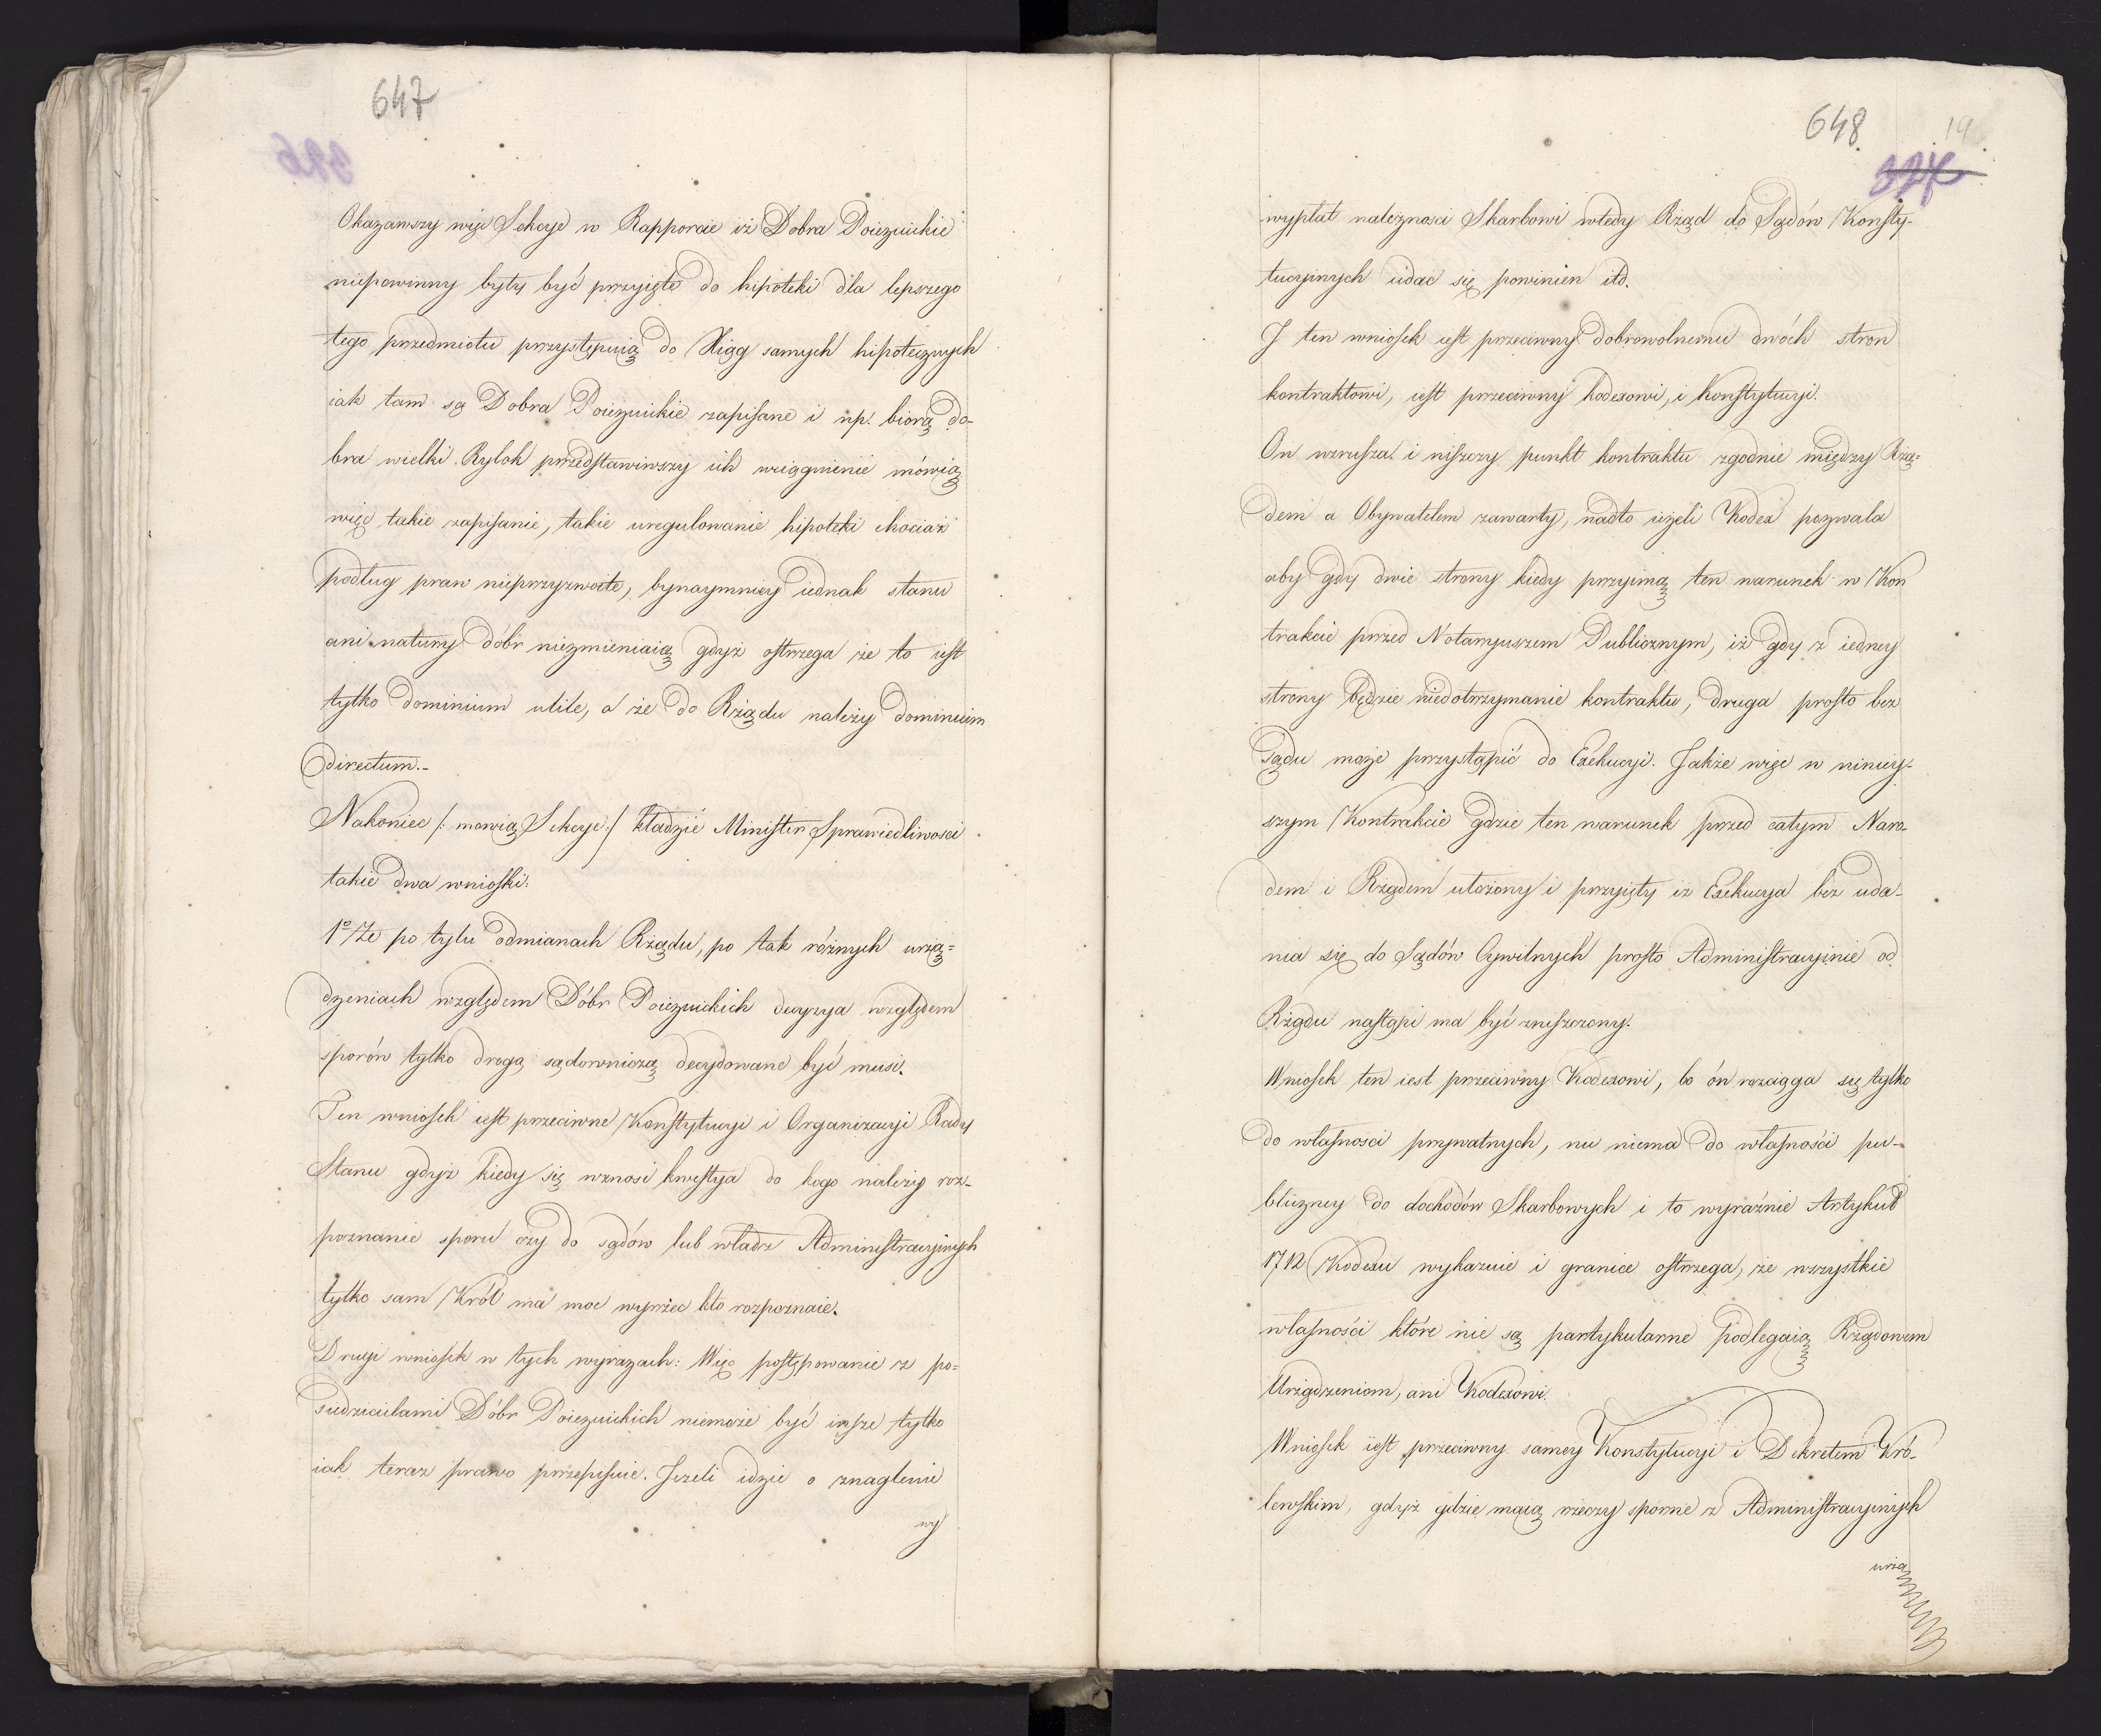 647
Okazawszy więc Sekcye w Rapporcie iż Dobra Poiezuickie
niepowinny były być przyięte do hipoteki dla lepszego
tego przedmiotu przystępuią do Xiąg samych hipotecznych
iak tam są Dobra Poiezuickie zapisane i np. biorą do-
bra wielki Rylok przedstawiwszy ich wciągnienie mówią
więc takie zapisanie, takie uregulowanie hipoteki chociaż
podług praw nieprzyzwoite, bynaymniey iednak stanu
ani natury dóbr niezmieniaią gdyż ostrzega że to iest
tylko dominium utile, a że do Rządu należy dominium
directum.-
Nakoniec /: mowią Sekcye :/ kładzie Minister Sprawiedliwosci
takie dwa wnioski:
1º Że po tylu odmianach Rządu, po tak różnych urzą=
dzeniach względem Dóbr Poiezuickich decyzya względem
sporów tylko drogą sądowniczą decydowane być musi.
Ten wniosek iest przeciwne Konstytucyi i Organizacyi Rady
Stanu gdyż kiedy się wznosi kwestya do kogo należy roz-
poznanie sporu czy do sądów lub władz Administracyinych
tylko sam Król ma moc wyrzec kto rozpoznaie.
Drugi wniosek w tych wyrazach: Więc postępowanie z po=
siedzicielami Dóbr Poiezuickich niemoże być insze tylko
iak teraz prawo przepisuie. Jeżeli idzie o znaglenie
wy
648
19
327
wypłat należnosci Skarbowi wtedy Rząd do Sądów Konsty-
tucyinych udac się powinien itd.
I ten wniosek iest przeciwny dobrowolnemu dwóch stron
kontraktowi, iest przeciwny kodexowi, i Konstytucyi.
On wzrusza i niszczy punkt kontraktu zgodnie między Rzą=
dem a Obywatelem zawarty, nadto ieżeli Kodex pozwala
aby gdy dwie strony kiedy przyimą ten warunek w Kon
trakcie przed Notaryuszem Publicznym, iż gdy z iedney
strony będzie niedotrzymanie kontraktu, druga prosto bez
Sądu może przystąpić do Exekucyi. Jakże więc w niniey-
szym Kontrakcie gdzie ten warunek przed całym Naro-
dem i Rządem ułożony i przyięty iż Exekucya bez uda-
nia się do Sądów Cywilnych prosto Administracyinie od
Rządu nastąpi ma być zniszczony.
Wniosek ten iest przeciwny Kodexowi, bo ón rozciąga się tylko
do własnosci prywatnych, nu niema do własności pu-
bliczney do dochodów Skarbowych i to wyraźnie Artykuł
1712 Kodexu wykazuie i granice ostrzega, że wszystkie
własności które nie są partykularne podlegaią Rządowem
Urządzeniom, ani Kodexowi.
Wniosek iest przeciwny samey Konstytucyi i Dekretem Kró-
lewskim, gdyż gdzie maią rzeczy sporne z Administracyinych
urzą